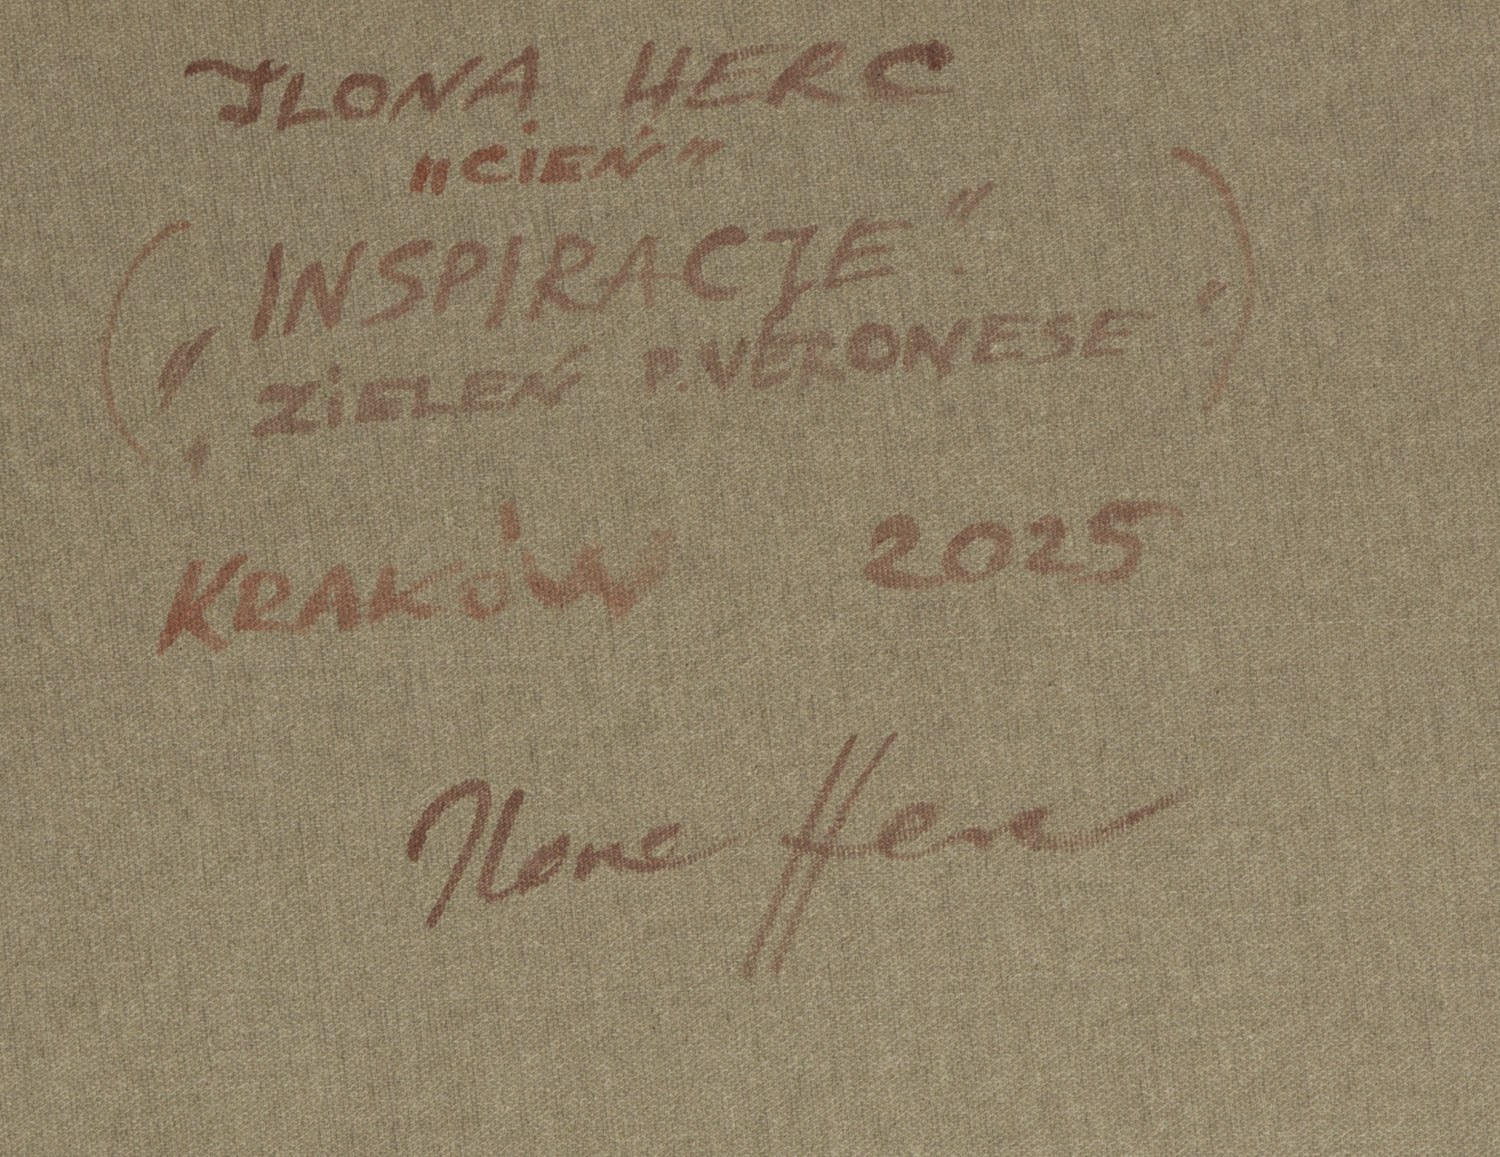 ILONA HERC
"CIEŃ"
("INSPIRACJE"
"ZIELEŃ P. VERONESE")
KRAKÓW 2025
Ilona Herc